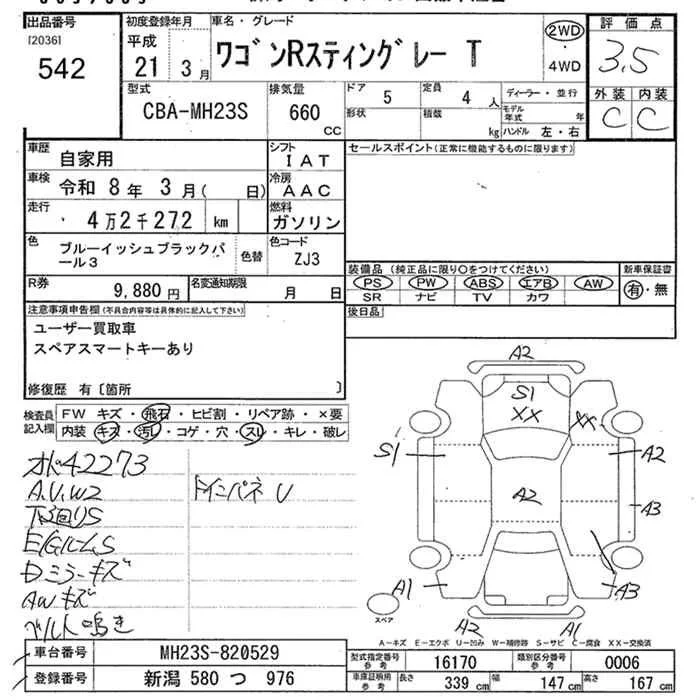 出品番号 初度登録年月 車名・グレード 評価点
[2036] 平成 ワゴンRスティングレー T 2WD・4WD 3.5
542 21年 3月
型式 排気量 ドア 5 定員 4人 ディーラー・並行 外装 内装
CBA-MH23S 660 cc 形状 積載 kg モデル年式 年 C C
ハンドル 左・右
車歴 自家用 シフト IAT セールスポイント(正常に機能するものに限ります)
車検 令和 8年 3月( 日) 冷房 AAC
走行 4万2千272 km 燃料 ガソリン
色 ブルーイッシュブラックパール3 色替 色コード ZJ3
装備品(純正品に限り○をつけてください) 新車保証書
R券 9,880円 名変通知期限 月 日 PS PW ABS エアB AW 有・無
SR ナビ TV カワ
注意事項申告欄(不具合内容等は具体的に記入して下さい) 後日品
ユーザー買取車
スペアスマートキーあり
修復歴 有〔箇所 〕
検査員記入欄 FW キズ・飛石・ヒビ割・リペア跡・×要
内装 キズ・汚レ・コゲ・穴・スレ・キレ・破レ
オド42273
A.U.W2 トインパネU
下廻りS
E/GルームS
Dミラーキズ
AWキズ
ベルト鳴き
A2
S1
XX XX
S1 A2
A2 A3
A1 A3
A2 A1
スペア
A－キズ E－エクボ U－凹み W－補修跡 S－サビ C－腐食 XX－交換済
車台番号 MH23S-820529 型式指定番号 参考 16170 類別区分番号 参考 0006
登録番号 新潟 580 つ 976 車庫証明用 参考 長さ 339 cm 幅 147 cm 高さ 167 cm